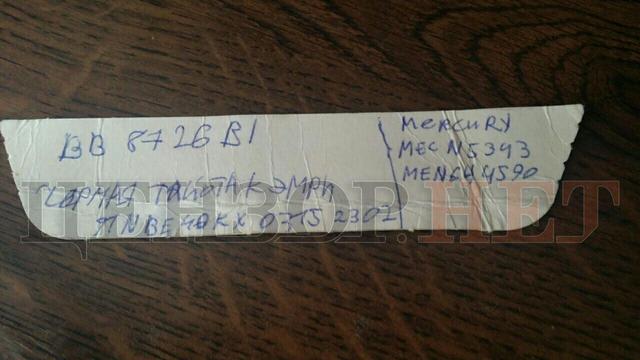 BB 8726 BI
ЧОРНАЯ ТАЙОТА КЭМРИ
JTNBE40KX 0715 2302
MERCURY
MEC N5393
MENGU4590
ЦЕНЗОР.НЕТ